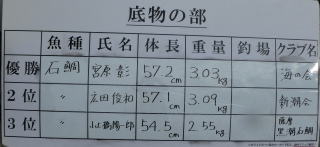 底物の部
魚種 氏名 体長 重量 釣場 クラブ名
優勝 石鯛 宮原彰 57.2cm 3.03kg 海の会
2位 〃 広田俊和 57.1cm 3.09kg 新潮会
3位 〃 小山陽一郎 54.5cm 2.55kg 薩摩黒潮石鯛